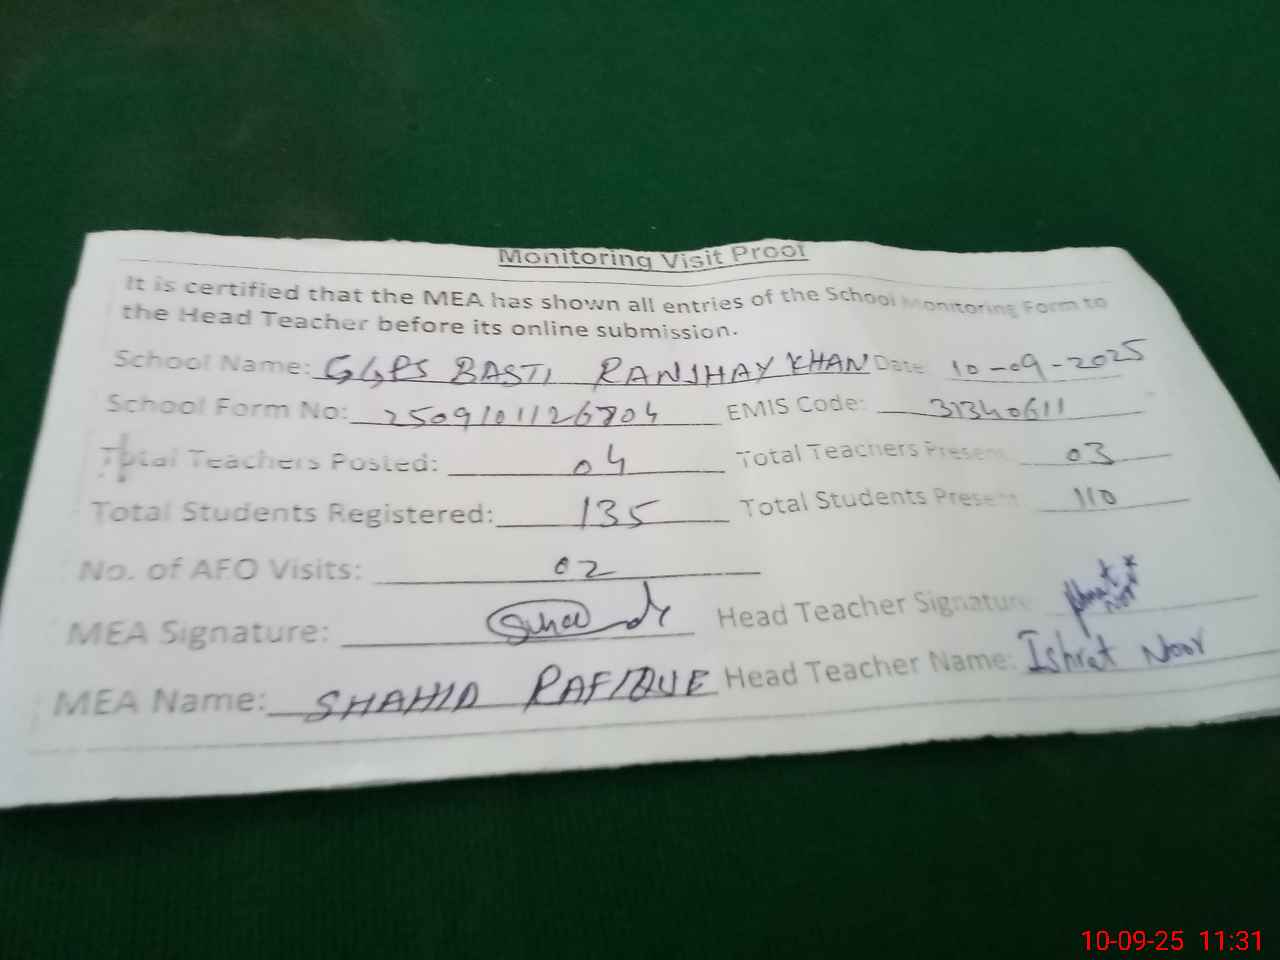 Monitoring Visit Proof
It is certified that the MEA has shown all entries of the School Monitoring Form to
the Head Teacher before its online submission.
School Name: GGPS BASTI RANJHAY KHAN Date 10-09-2025
School Form No: 2509101126804 EMIS Code: 31340611
Total Teachers Posted: 04 Total Teachers Present 03
Total Students Registered: 135 Total Students Present 110
No. of AFO Visits: 02
MEA Signature: Head Teacher Signature Ishrat Noor
MEA Name: SHAHID RAFIQUE Head Teacher Name: Ishrat Noor
10-09-25 11:31